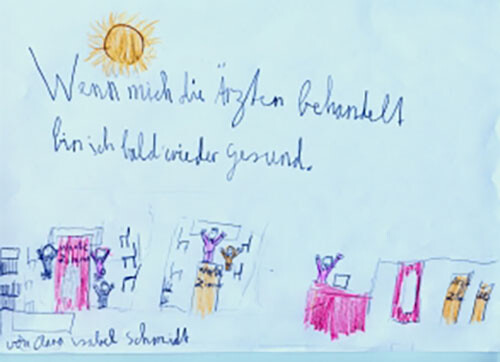 Wenn mich die Ärzten behandelt
bin ich bald wieder gesund.
von Clara Isabel Schmidt